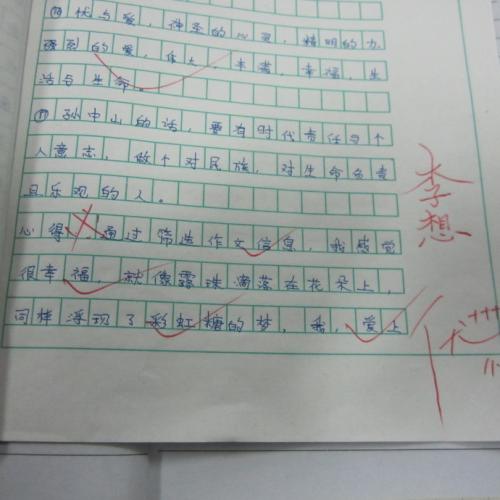 ⑩ 伏与爱，神圣的心灵，精明的力
强烈的爱，伟大，幸福，生
活与生命。
⑪ 孙中山的话，要有时代责任与个
人意志，做个对民族，对生命负责
且乐观的人。
心得：通过筛选作文信息，我感觉
很幸福，就像露珠滴落在花朵上，
同样浮现了彩虹糖的梦，我，爱上
李想
优+++